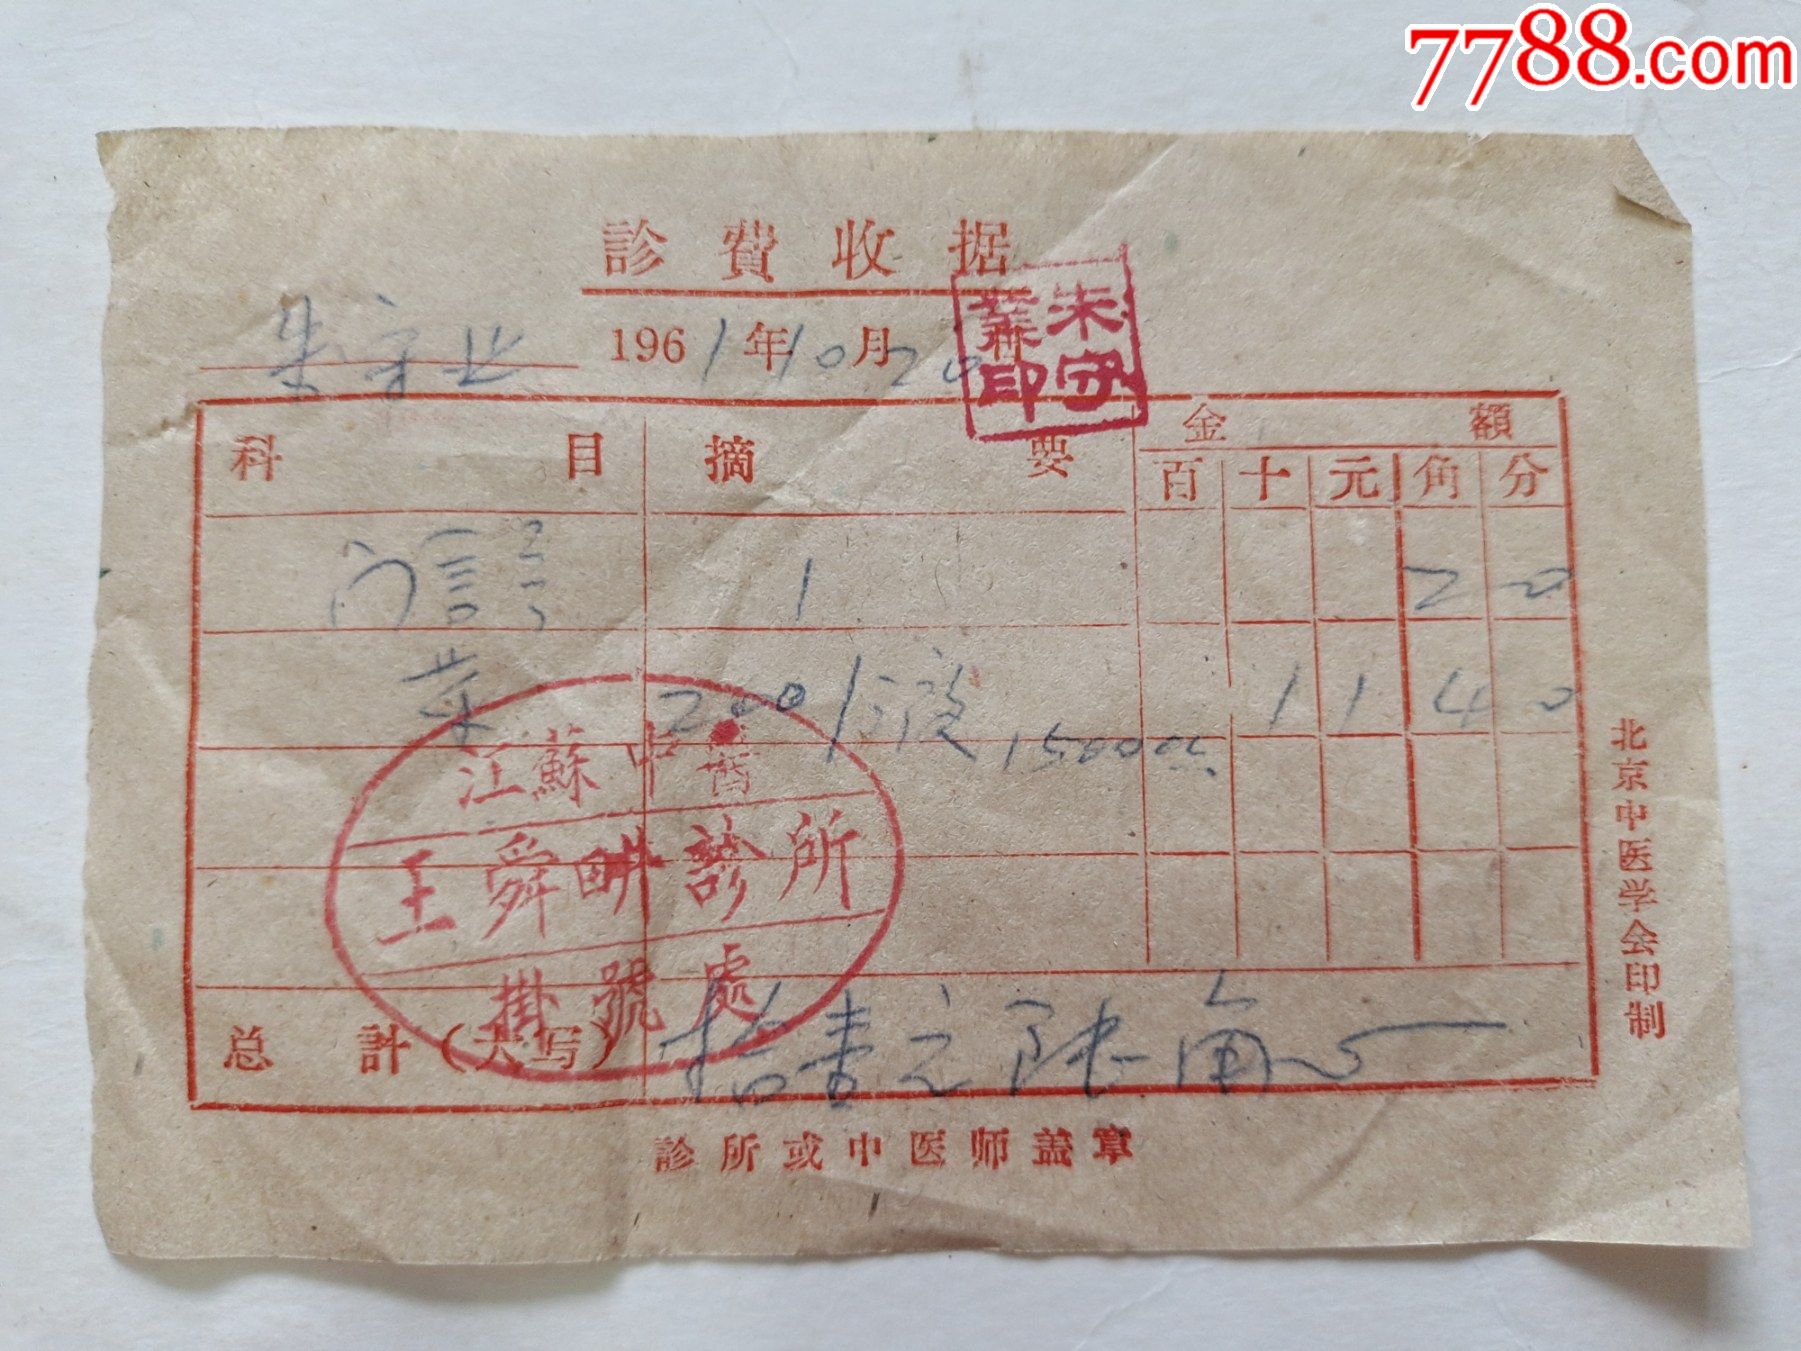 7788.com
診費收据
朱守业 1961年10月20
朱守業印
科目 摘要 金額
百 十 元 角 分
1 2 0
200 1 1 4 0
江蘇中醫
王舜畊診所
掛號處
总計(大写) 拾壹元陆角
診所或中医师盖章
北京中医学会印制